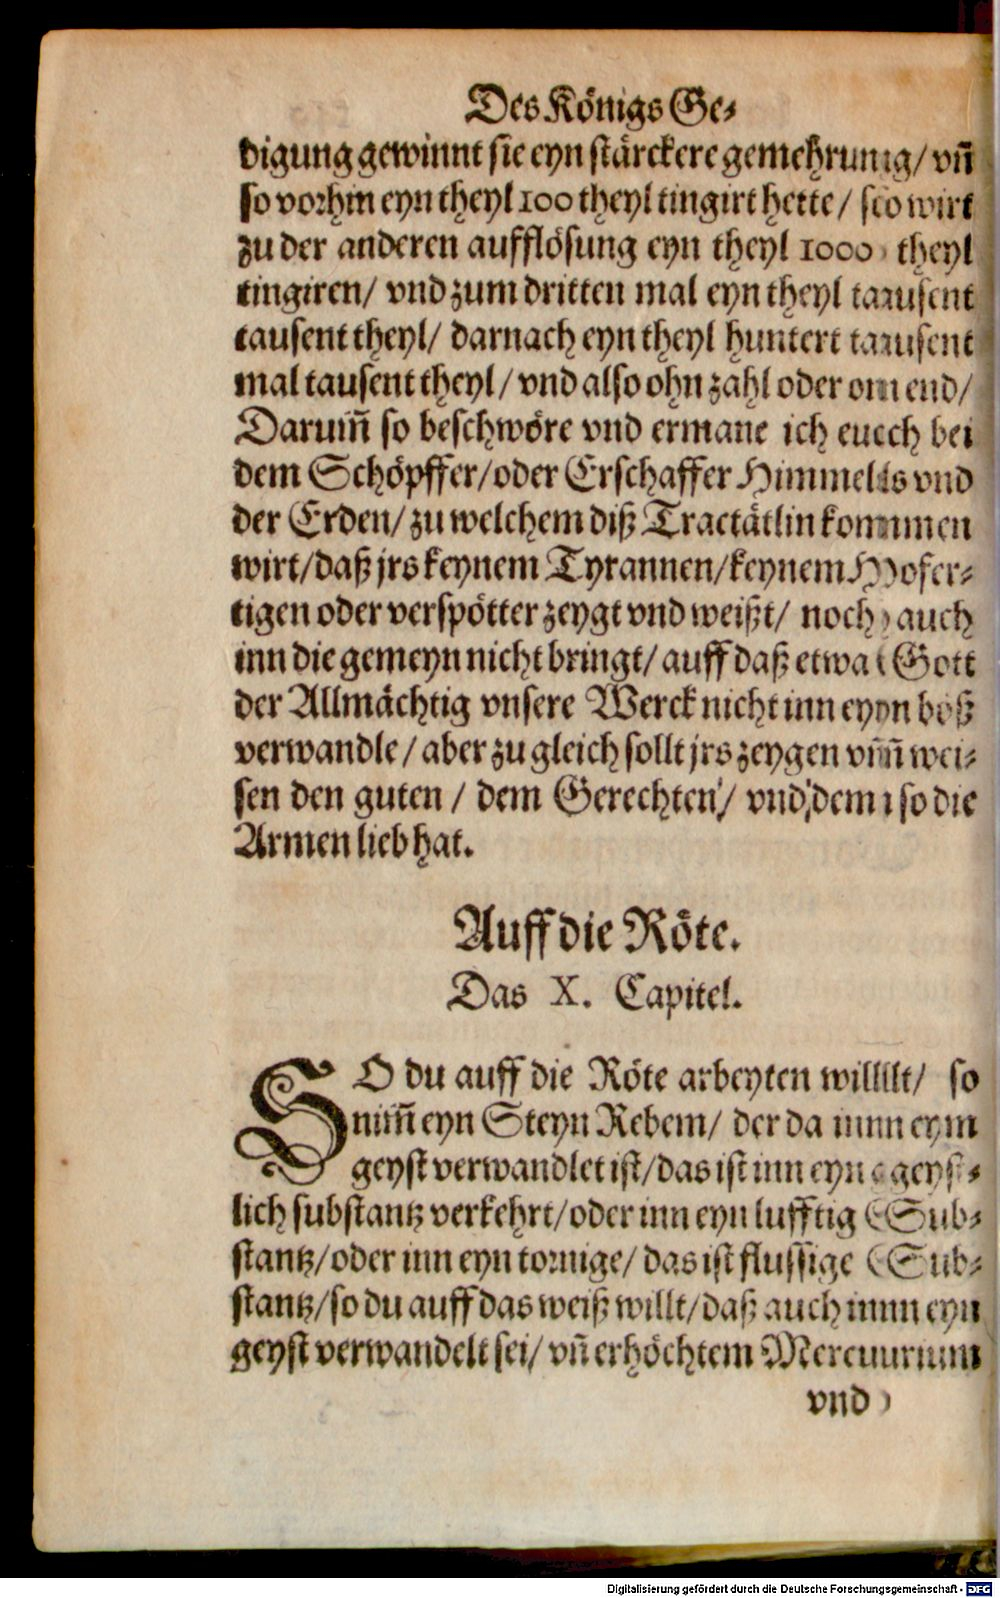 Des Königs Ge⸗
digung gewinnt sie eyn stärckere gemehrung/ vnñ
so vorhin eyn theyl 100 theyl tingirt hette/ so wirt
zu der anderen aufflösung eyn theyl 1000 theyl
tingiren/ vnd zum dritten mal eyn theyl tausent
tausent theyl/ darnach eyn theyl huntert tausent
mal tausent theyl/ vnd also ohn zahl oder on end/
Darum̃ so beschwöre vnd ermane ich euch bei
dem Schöpffer/oder Erschaffer Himmels vnd
der Erden/ zu welchem diß Tractätlin kommen
wirt/daß jrs keynem Tyrannen/keynem Hofer⸗
tigen oder verspötter zeygt vnd weißt/ noch auch
inn die gemeyn nicht bringt/ auff daß etwa Gott
der Allmächtig vnsere Werck nicht inn eyn böß
verwandle/ aber zu gleich sollt jrs zeygen vnñ wei⸗
sen den guten/ dem Gerechten/ vnd dem so die
Armen lieb hat.
Auff die Röte.
Das X. Capitel.
SO du auff die Röte arbeyten willt/ so
nim̃ eyn Steyn Rebem/ der da inn eym
geyst verwandlet ist/das ist inn eyn geyst⸗
lich substantz verkehrt/oder inn eyn lufftig Sub⸗
stantz/oder inn eyn tornige/ das ist flussige Sub⸗
stantz/so du auff das weiß willt/daß auch inn eyn
geyst verwandelt sei/ vñ erhöchtem Mercurium
vnd
Digitalisierung gefördert durch die Deutsche Forschungsgemeinschaft - DFG